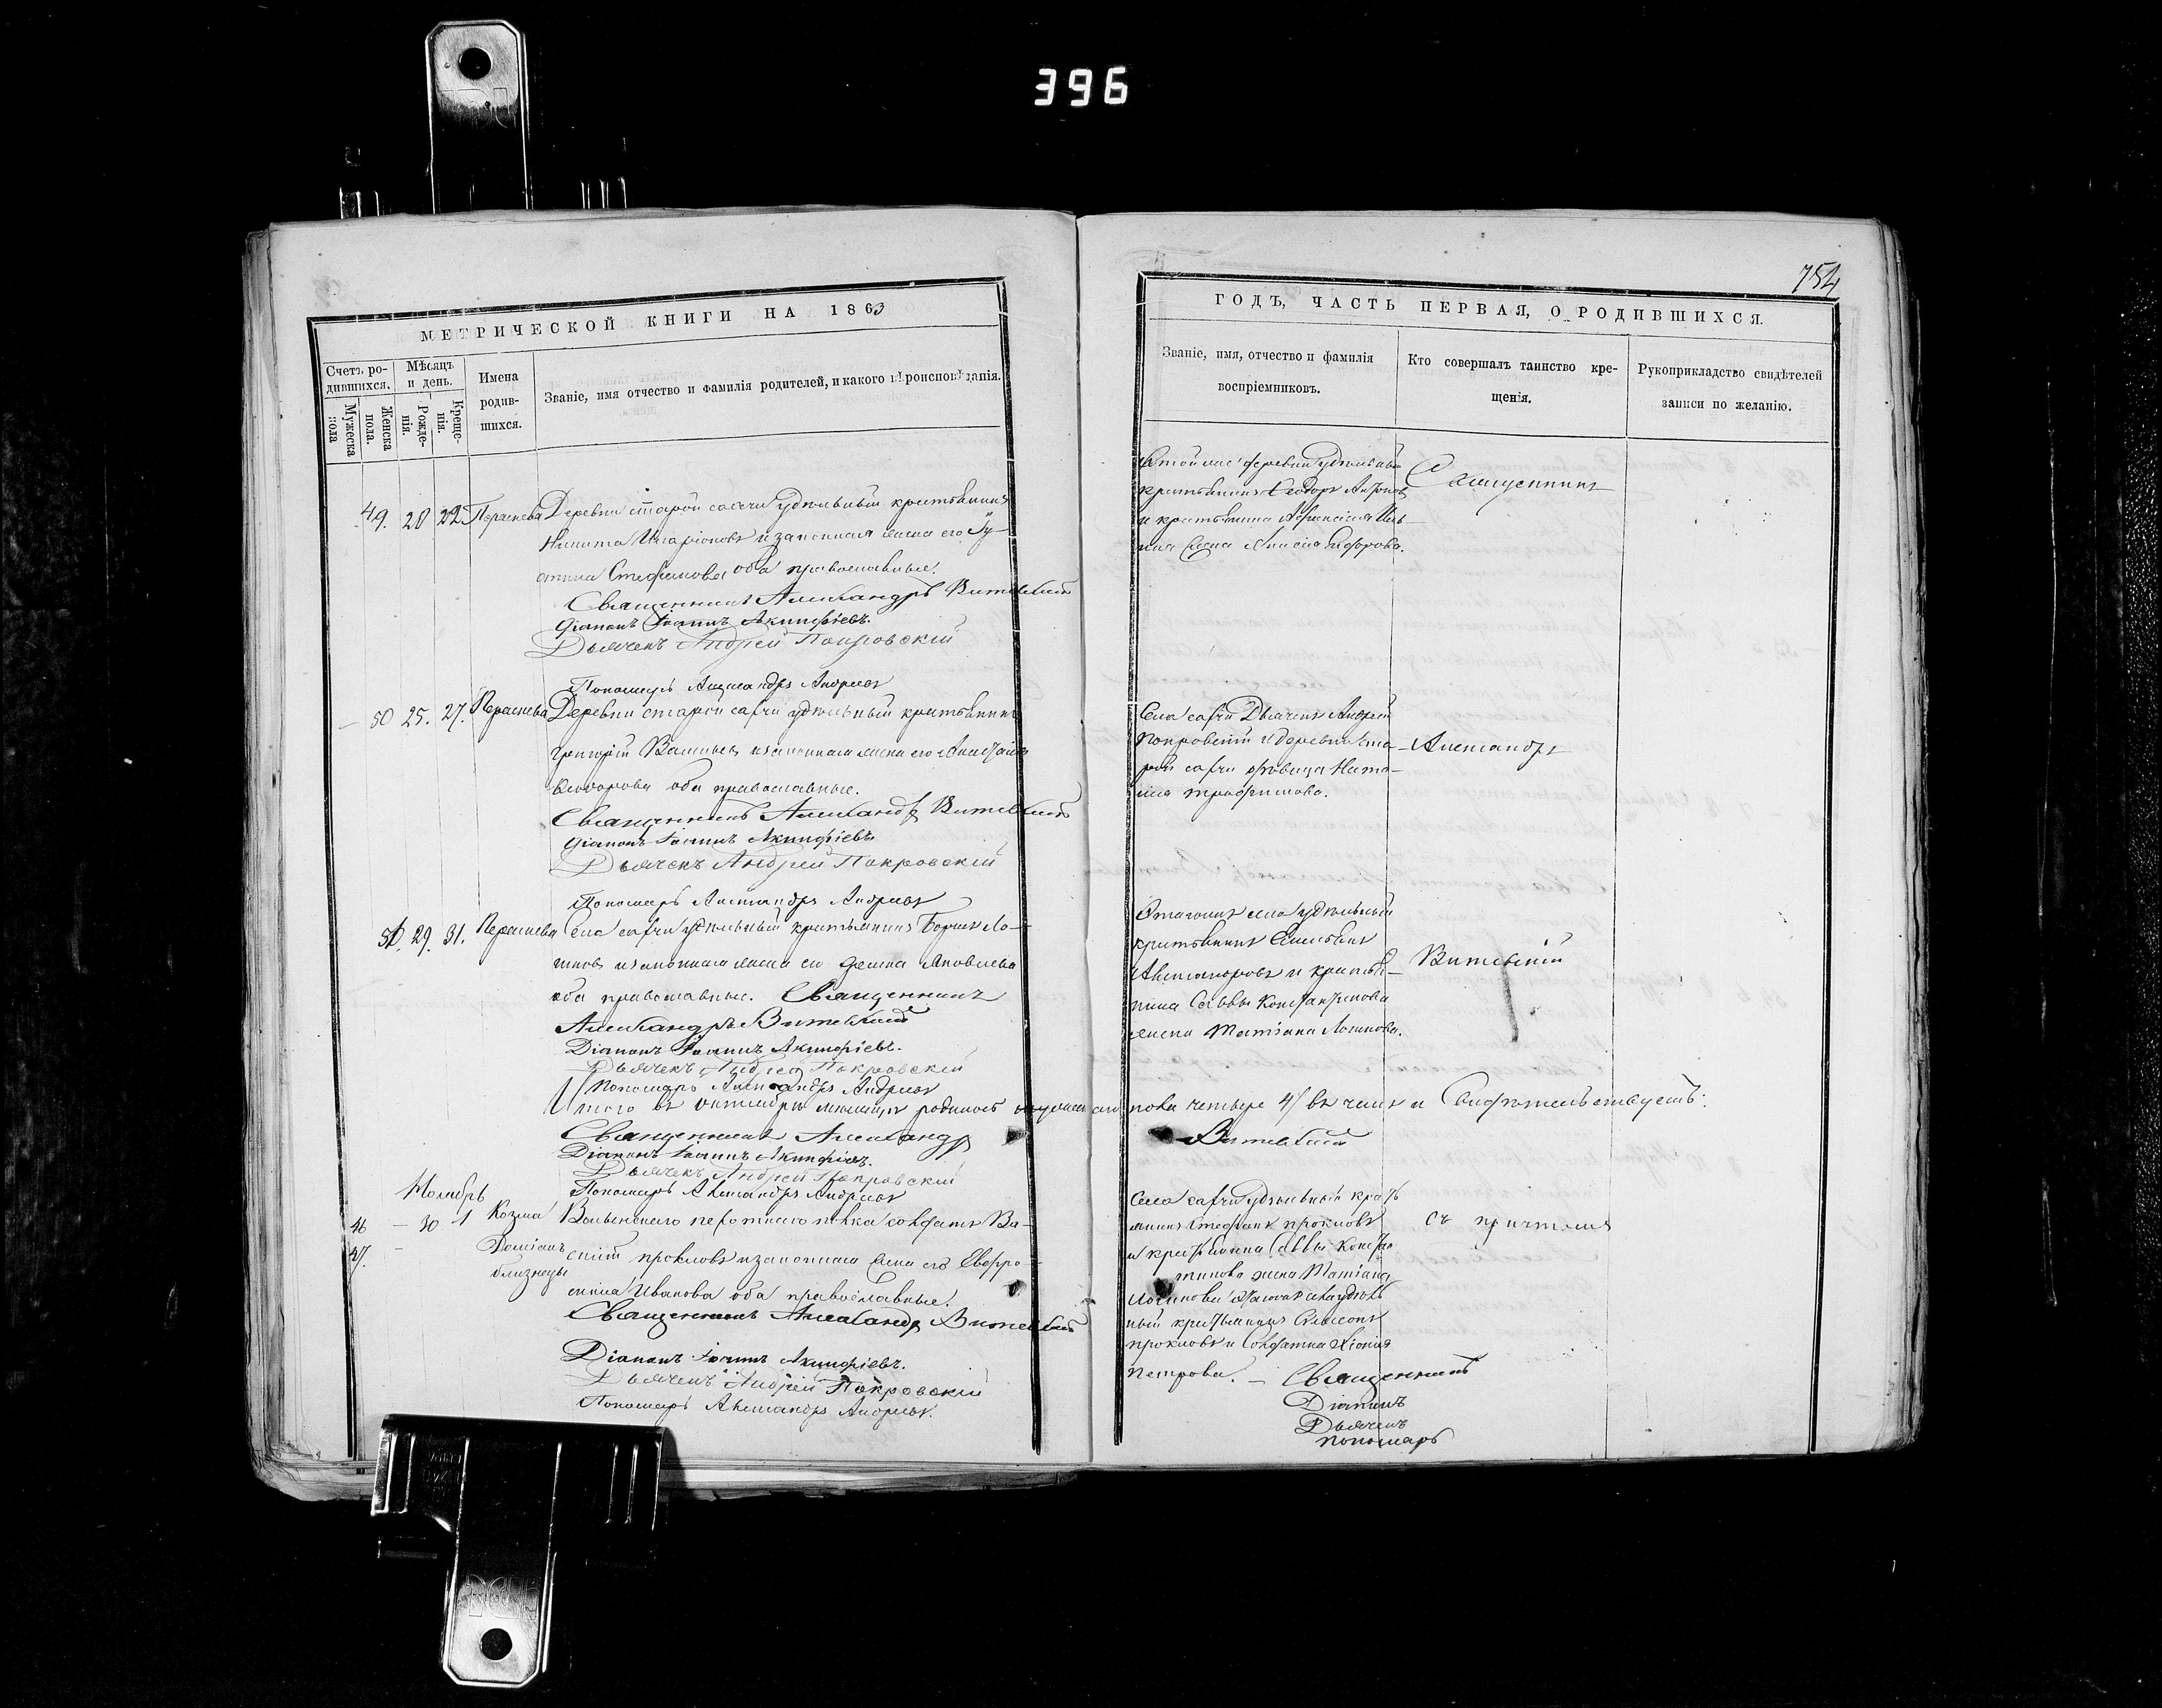 396
754
МЕТРИЧЕСКОЙ КНИГИ НА 1863
Счетъ ро-
дившихся.
Мужеска
пола
Женска
пола.
Мѣсяцъ
и день.
Рожде-
нія.
Креще-
нія.
Имена
родив-
шихся.
Званіе, имя отчество и фамилія родителей, и какого вѣроисповѣданія.
49. 20 22 Параскева Деревни старой савчи удѣльный крестьянинъ
Никита Иларіоновъ и законная жена его Іу-
стина Стефанова оба православные.
Священникъ Александръ Витевскій
Діаконъ Іоаннъ Акинфіевъ.
Дьячекъ Андрей Покровскій
Пономарь Александръ Андреевъ
50 25. 27. Параскева Деревни старой савчи удѣльный крестьянинъ
Григорій Васильевъ и законная жена его Анастасія
Ѳеодорова оба православные.
Священникъ Александръ Витевскій
Діаконъ Іоаннъ Акинфіевъ
Дьячекъ Андрей Покровскій
Пономарь Александръ Андреевъ
51. 29. 31. Параскева Села савчи удѣльный крестьянинъ Борисъ Ло-
гиновъ и законная жена его Яковлева
оба православные. Священникъ
Александръ Витевскій
Діаконъ Іоаннъ Акинфіевъ.
Дьячекъ Андрей Покровскій
Пономарь Александръ Андреевъ
Итого въ октябрѣ мѣсяцѣ родилось
Священникъ Александръ
Діаконъ Іоаннъ Акинфіевъ.
Дьячекъ Андрей Покровскій
Пономарь Александръ Андреевъ
Ноябрь
46 — 30 1 Козма Волынскаго пехотнаго полка солдатъ Ва-
47. — Даміанъ силій Прокловъ и законная жена его Евфро-
близнецы
синія Иванова оба православные.
Священникъ Александръ Витевскій
Діаконъ Іоаннъ Акинфіевъ.
Дьячекъ Андрей Покровскій
Пономарь Александръ Андреевъ.
ГОДЪ, ЧАСТЬ ПЕРВАЯ, О РОДИВШИХСЯ.
Званіе, имя, отчество и фамилія
воспріемниковъ.
Кто совершалъ таинство кре-
щенія.
Рукоприкладство свидѣтелей
записи по желанію.
деревни удѣльный
крестьянинъ Ѳеодоръ Антонов
и крестьянина Афанасія
жена Ѳеодорова.
Священникъ
Села савчи Дьячекъ Андрей
Покровскій и деревни ста-
рой савчи вдовица Ната-
лія Трофимова.
Александръ
села удѣльный
крестьянинъ
Александровъ и крестья-
нина Саввы Константинова
жена Татіана Логинова.
Витевскій
пола четыре 4/ въ чемъ и Свидѣтельствуетъ:
Витевскій
Села савчи удѣльный кресть
янинъ Стефанъ Прокловъ
и крестьянина Саввы Конста
тинова жена Татіана
Логинова удѣль
ный крестьянинъ Симеонъ
Прокловъ и Солдатка Хіонія
Петрова. — Священникъ
Діаконъ
Дьячекъ
Пономарь
съ причтомъ